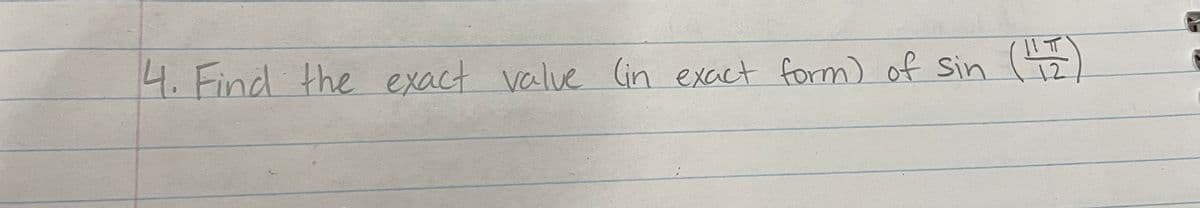 4. Find the exact value (in exact form) of sin (11π/12)